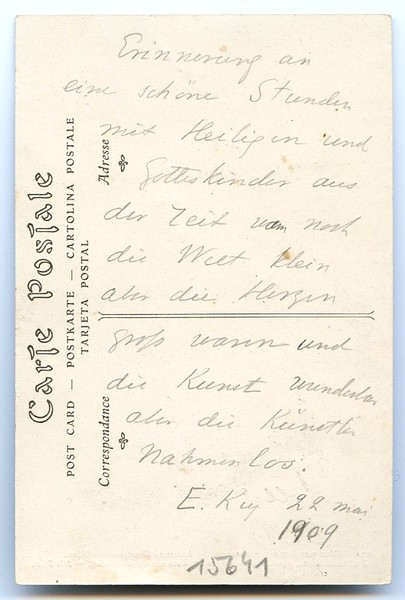 Erinnerung an
eine schöne Stunden
mit Heiligin und
Gotteskinder aus
der Zeit wan noch
die Welt klein
aber die Herzen
groß waren und
die Kunst wunderbar
aber die Künstler
Nahmenlos.
E. Key 22 mai
1909
15641
Carte Postale
POST CARD — POSTKARTE — CARTOLINA POSTALE
TARJETA POSTAL
Correspondance
Adresse